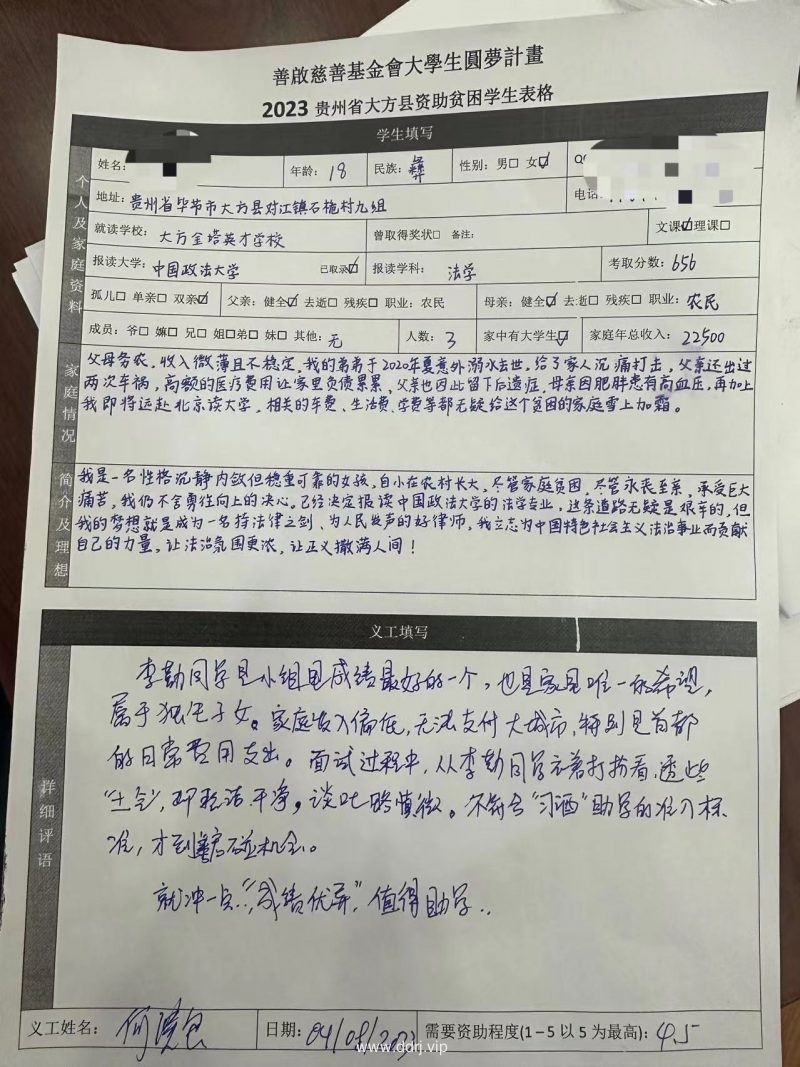 善啟慈善基金會大學生圓夢計畫
2023 贵州省大方县资助贫困学生表格
学生填写
个人及家庭资料
姓名: 年龄: 18 民族: 彝 性别: 男□ 女☑ QQ
地址: 贵州省毕节市大方县对江镇石桅村九组 电话:
就读学校: 大方金塔英才学校 曾取得奖状□ 备注: 文课☑理课□
报读大学: 中国政法大学 已取录☑ 报读学科: 法学 考取分数: 656
孤儿□ 单亲□ 双亲☑ 父亲: 健全☑ 去逝□ 残疾□ 职业: 农民 母亲: 健全☑ 去逝□ 残疾□ 职业: 农民
成员: 爷□ 嫲□ 兄□ 姐□弟□ 妹□ 其他: 无 人数: 3 家中有大学生☑ 家庭年总收入: 22500
家庭情况
父母务农，收入微薄且不稳定，我的弟弟于2020年夏意外溺水去世。给了家人沉痛打击，父亲还出过
两次车祸，高额的医疗费用让家里负债累累，父亲也因此留下后遗症，母亲因肥胖患有高血压，再加上
我即将远赴北京读大学，相关的车费、生活费、学费等都无疑给这个贫困的家庭雪上加霜。
简介及理想
我是一名性格沉静内敛但稳重可靠的女孩，自小在农村长大，尽管家庭贫困，尽管永丧至亲，承受巨大
痛苦，我仍不舍勇往向上的决心。已经决定报读中国政法大学的法学专业，这条道路无疑是艰辛的，但
我的梦想就是成为一名持法律之剑，为人民发声的好律师，我立志为中国特色社会主义法治事业而贡献
自己的力量，让法治氛围更浓，让正义撒满人间！
义工填写
详细评语
李勤同学是小组里成绩最好的一个，也是家里唯一的希望，
属于独生子女。家庭收入偏低，无法支付大城市，特别是首都
的日常费用支出。面试过程中，从李勤同学衣着打扮看，透些
“土气”，即整洁干净。谈吐略慎微。不符合“习酒”助学的准入标
准，才到 碰机会。
就冲一点：“成绩优异”，值得助学．
义工姓名: 日期: 04/08/2023 需要资助程度(1－5 以 5 为最高): 4.5
www.ddrj.vip